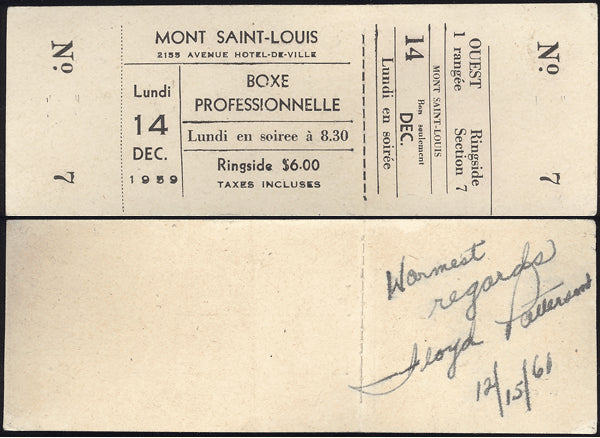 Nº 7
MONT SAINT-LOUIS
2155 AVENUE HOTEL-DE-VILLE
Lundi
14
DEC.
1959
BOXE
PROFESSIONNELLE
Lundi en soiree à 8.30
Ringside $6.00
TAXES INCLUSES
Lundi en soirée
14 DEC.
Bon seulement
MONT SAINT-LOUIS
1 rangée Section 7
OUEST Ringside
Nº 7
Warmest
regards
Floyd Patterson
12/15/61